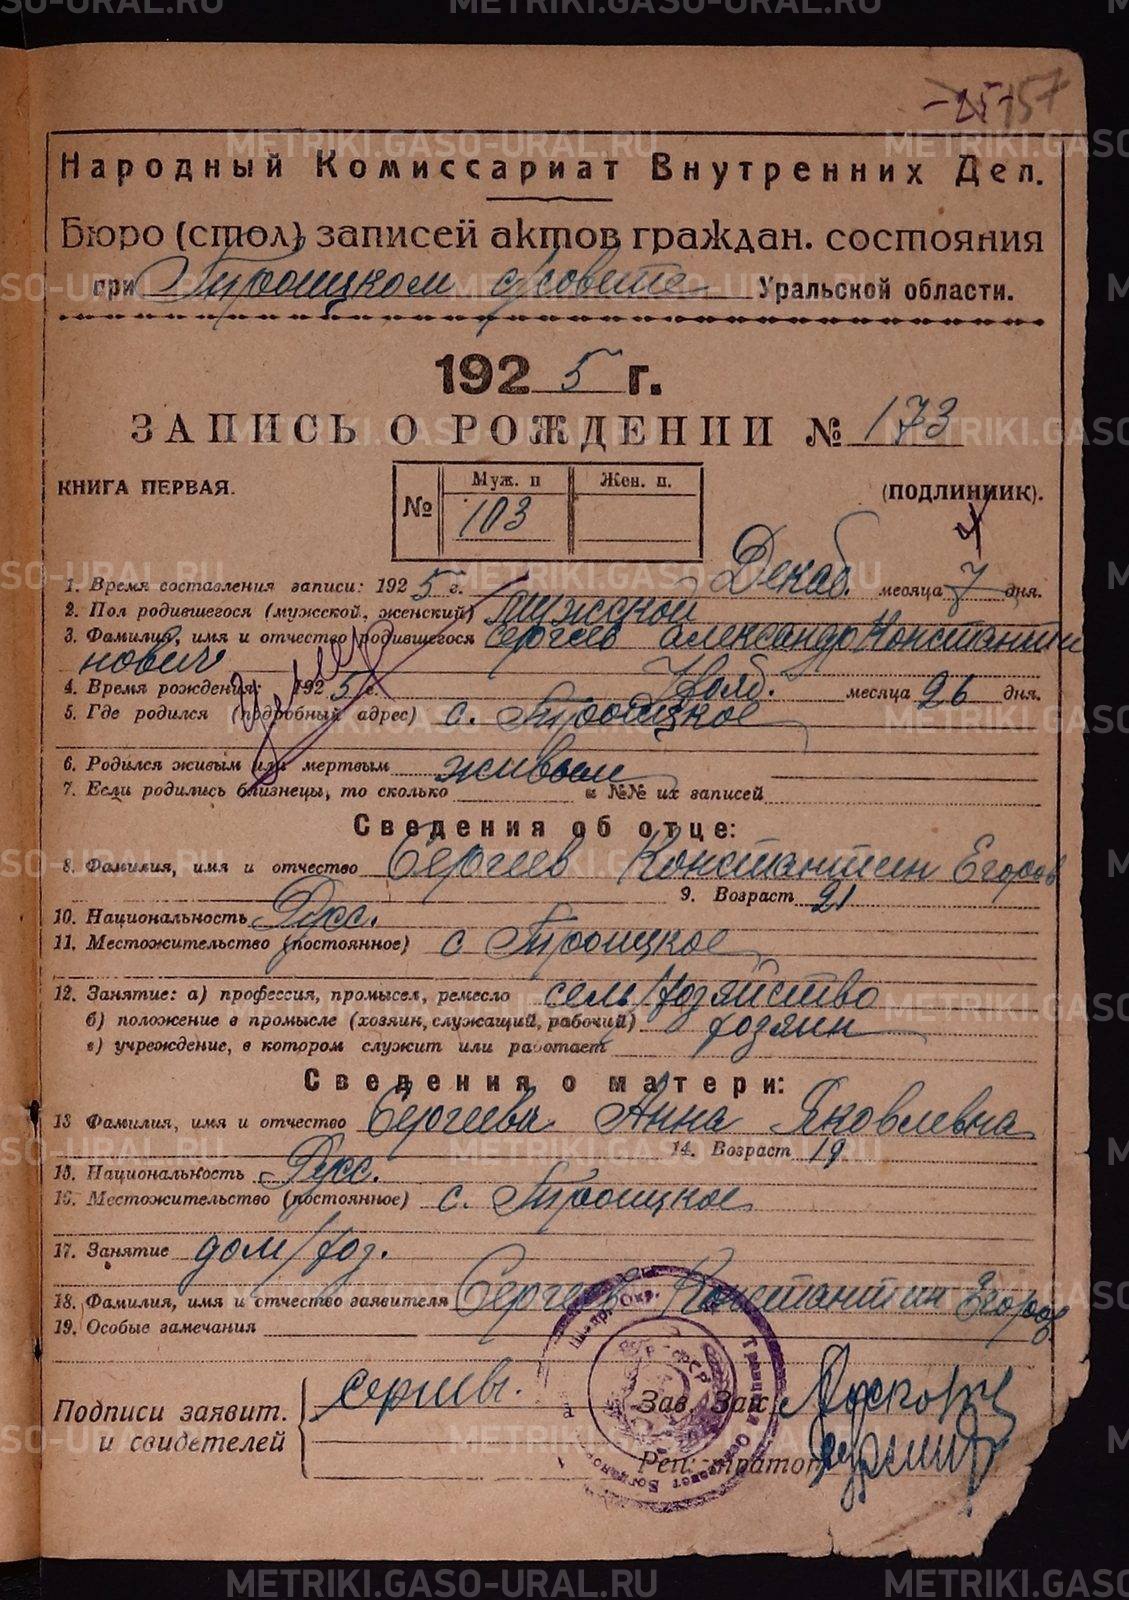 157
-25-
Народный Комиссариат Внутренних Дел.
Бюро (стол) записей актов граждан. состояния
при Троицком с/совете Уральской области.
1925 г.
ЗАПИСЬ О РОЖДЕНИИ № 173
КНИГА ПЕРВАЯ.
№ Муж. п Жен. п.
103
(ПОДЛИННИК).
1. Время составления записи: 1925 г. Декаб. месяца 7 дня.
2. Пол родившегося (мужской, женский) мужской
3. Фамилия, имя и отчество родившегося Сергеев Александр Константи
нович
4. Время рождения: 1925 г. Нояб. месяца 26 дня.
5. Где родился (подробный адрес) с. Троицкое
6. Родился живым или мертвым живым
7. Если родились близнецы, то сколько и №№ их записей
Умер
Сведения об отце:
8. Фамилия, имя и отчество Сергеев Константин Егоров
9. Возраст 21
10. Национальность Русс.
11. Местожительство (постоянное) с Троицкое
12. Занятие: а) профессия, промысел, ремесло сель/хозяйство
б) положение в промысле (хозяин, служащий, рабочий) хозяин
в) учреждение, в котором служит или работает
Сведения о матери:
13 Фамилия, имя и отчество Сергеева Анна Яковлевна
14. Возраст 19
15. Национальность Русс.
16. Местожительство (постоянное) с. Троицкое
17. Занятие дом/хоз.
18. Фамилия, имя и отчество заявителя Сергеев Константин Егоров
19. Особые замечания
Подписи заявит.
и свидетелей
Зав. Заг.
Регистратор
METRIKI.GASO-URAL.RU